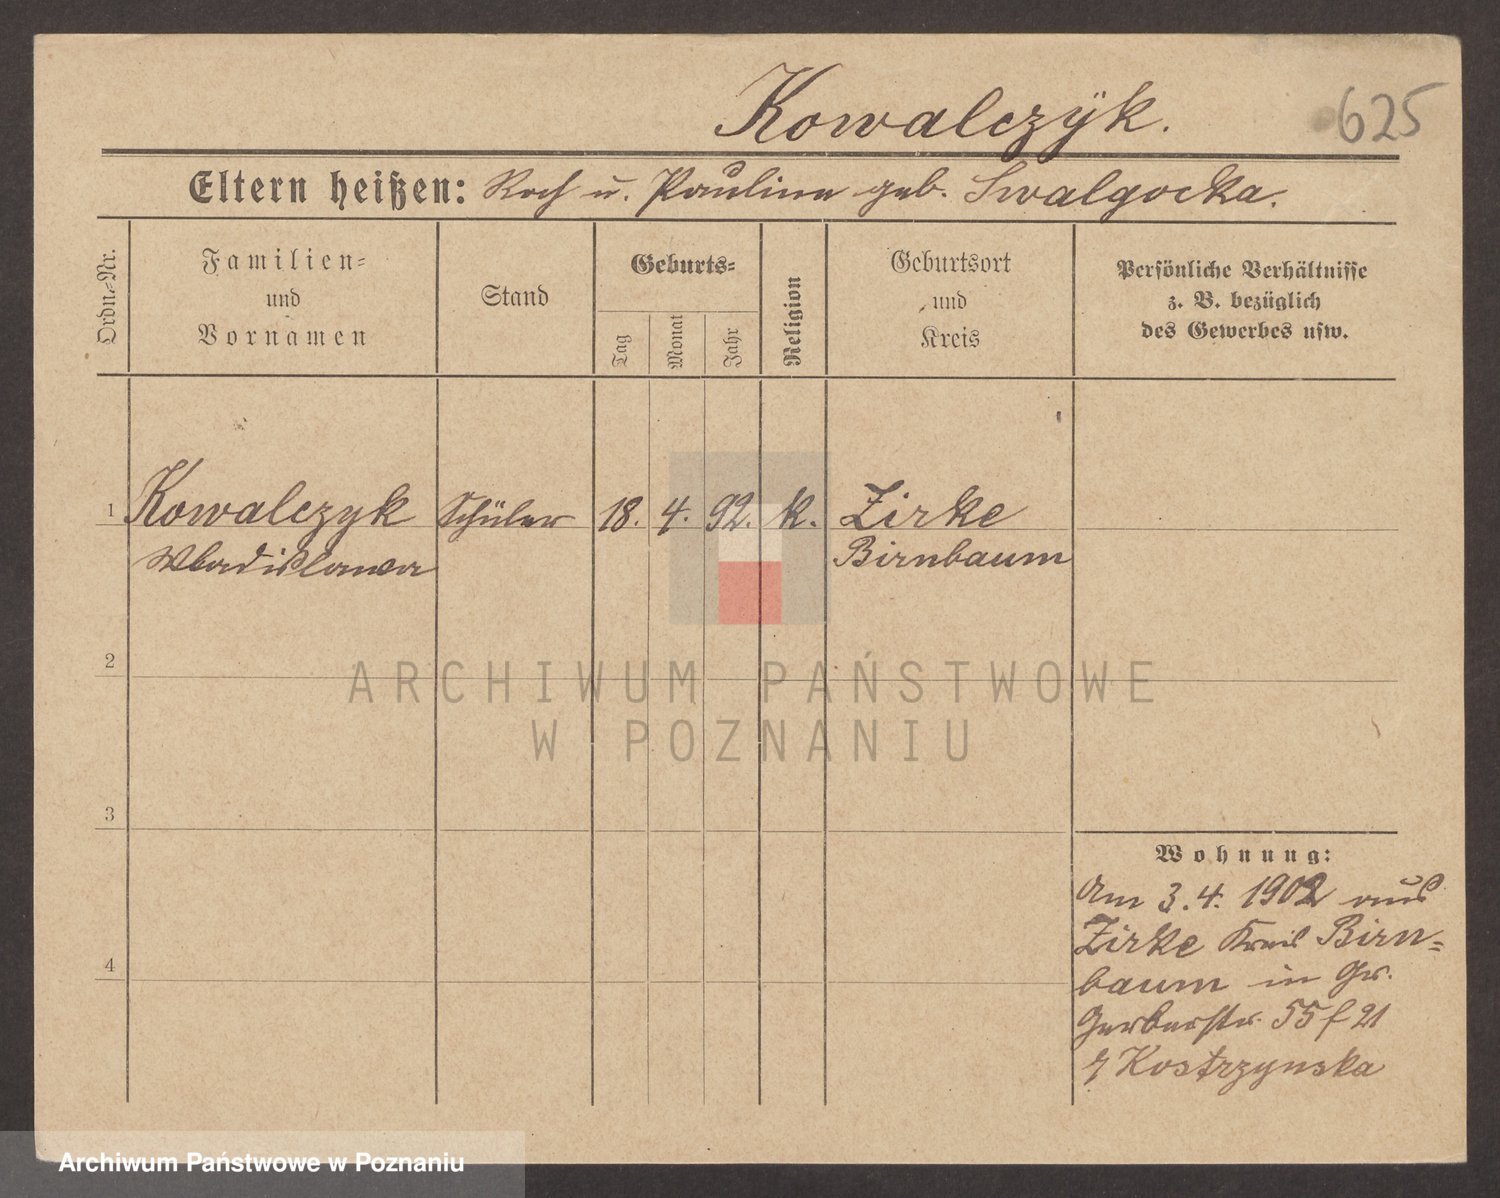 Kowalczÿk.
625
Eltern heißen: Roch u. Paulina geb.
Ordn=Nr.
Familien=
und
Vornamen
Stand
Geburts=
Tag
Monat
Jahr
Religion
Geburtsort
und
Kreis
Persönliche Verhältnisse
z. B. bezüglich
des Gewerbes usw.
1 Kowalczyk Schüler 18. 4. 92. k. Zirke
Wladislawa Birnbaum
2
ARCHIWUM PAŃSTWOWE
W POZNANIU
3
Wohnung:
Am 3.4. 1902 aus
Zirke Kreis Birn=
baum in Gr.
4
Gerberstr. 55 f 21
Kostrzynska
Archiwum Państwowe w Poznaniu